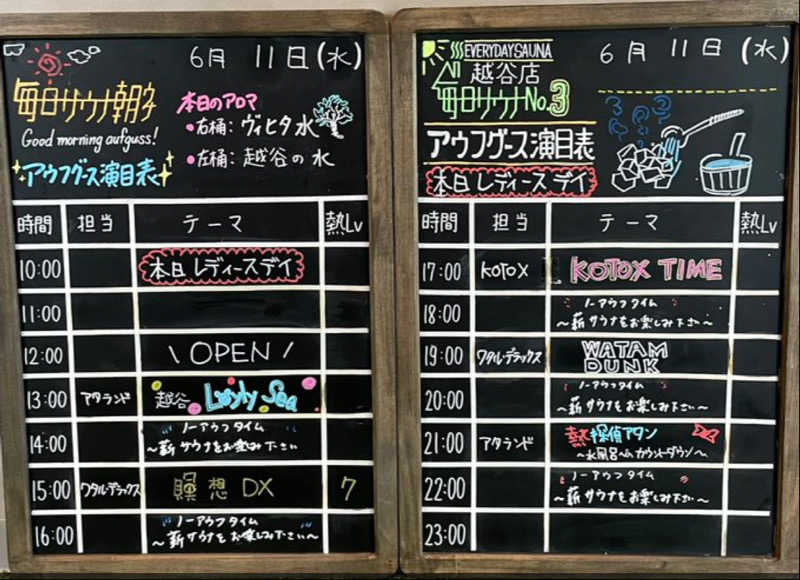 6月 11日(水)
毎日サウナ朝
Good morning aufguss!
アウフグース演目表
本日のアロマ
●右桶:ヴィヒタ水
●左桶:越谷の水
時間 担当 テーマ 熱Lv
10:00 本日レディースデイ
11:00
12:00 \ OPEN /
13:00 アタランド 越谷 Löyly Sea
14:00 ノーアウフタイム
～薪サウナをお楽しみ下さい
15:00 ワタル・デラックス 瞑想DX 7
16:00 ノーアウフタイム
～薪サウナをお楽しみ下さい～
6月 11日(水)
EVERYDAY SAUNA
越谷店
毎日サウナNo.3
アウフグース演目表
本日レディースデイ
時間 担当 テーマ 熱Lv
17:00 KOTOX KOTOX TIME
18:00 ノーアウフタイム
～薪サウナをお楽しみ下さい～
19:00 ワタル・デラックス WATAM
DUNK
20:00 ノーアウフタイム
～薪サウナをお楽しみ下さい～
21:00 アタランド 熱探偵アタン
～水風呂へのカウントダウン～
22:00 ノーアウフタイム
～薪サウナをお楽しみ下さい～
23:00